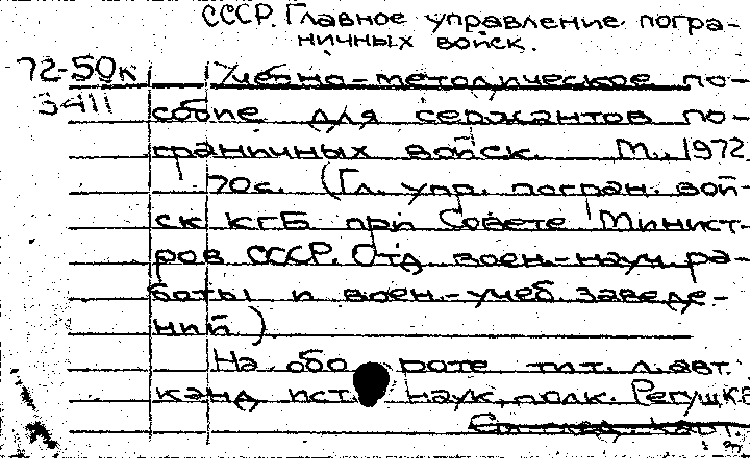 СССР. Главное управление погра-
ничных войск.
72-50к Учебно-методическое по-
3411 собие для сержантов по-
граничных войск. М., 1972.
70с. (Гл. упр. погран. вой-
ск КГБ при Совете Минист-
ров СССР. Отд. воен.-науч. ра-
боты и воен.-учеб. заведе-
ний).
На обороте тит. л. авт.
канд ист наук, полк.